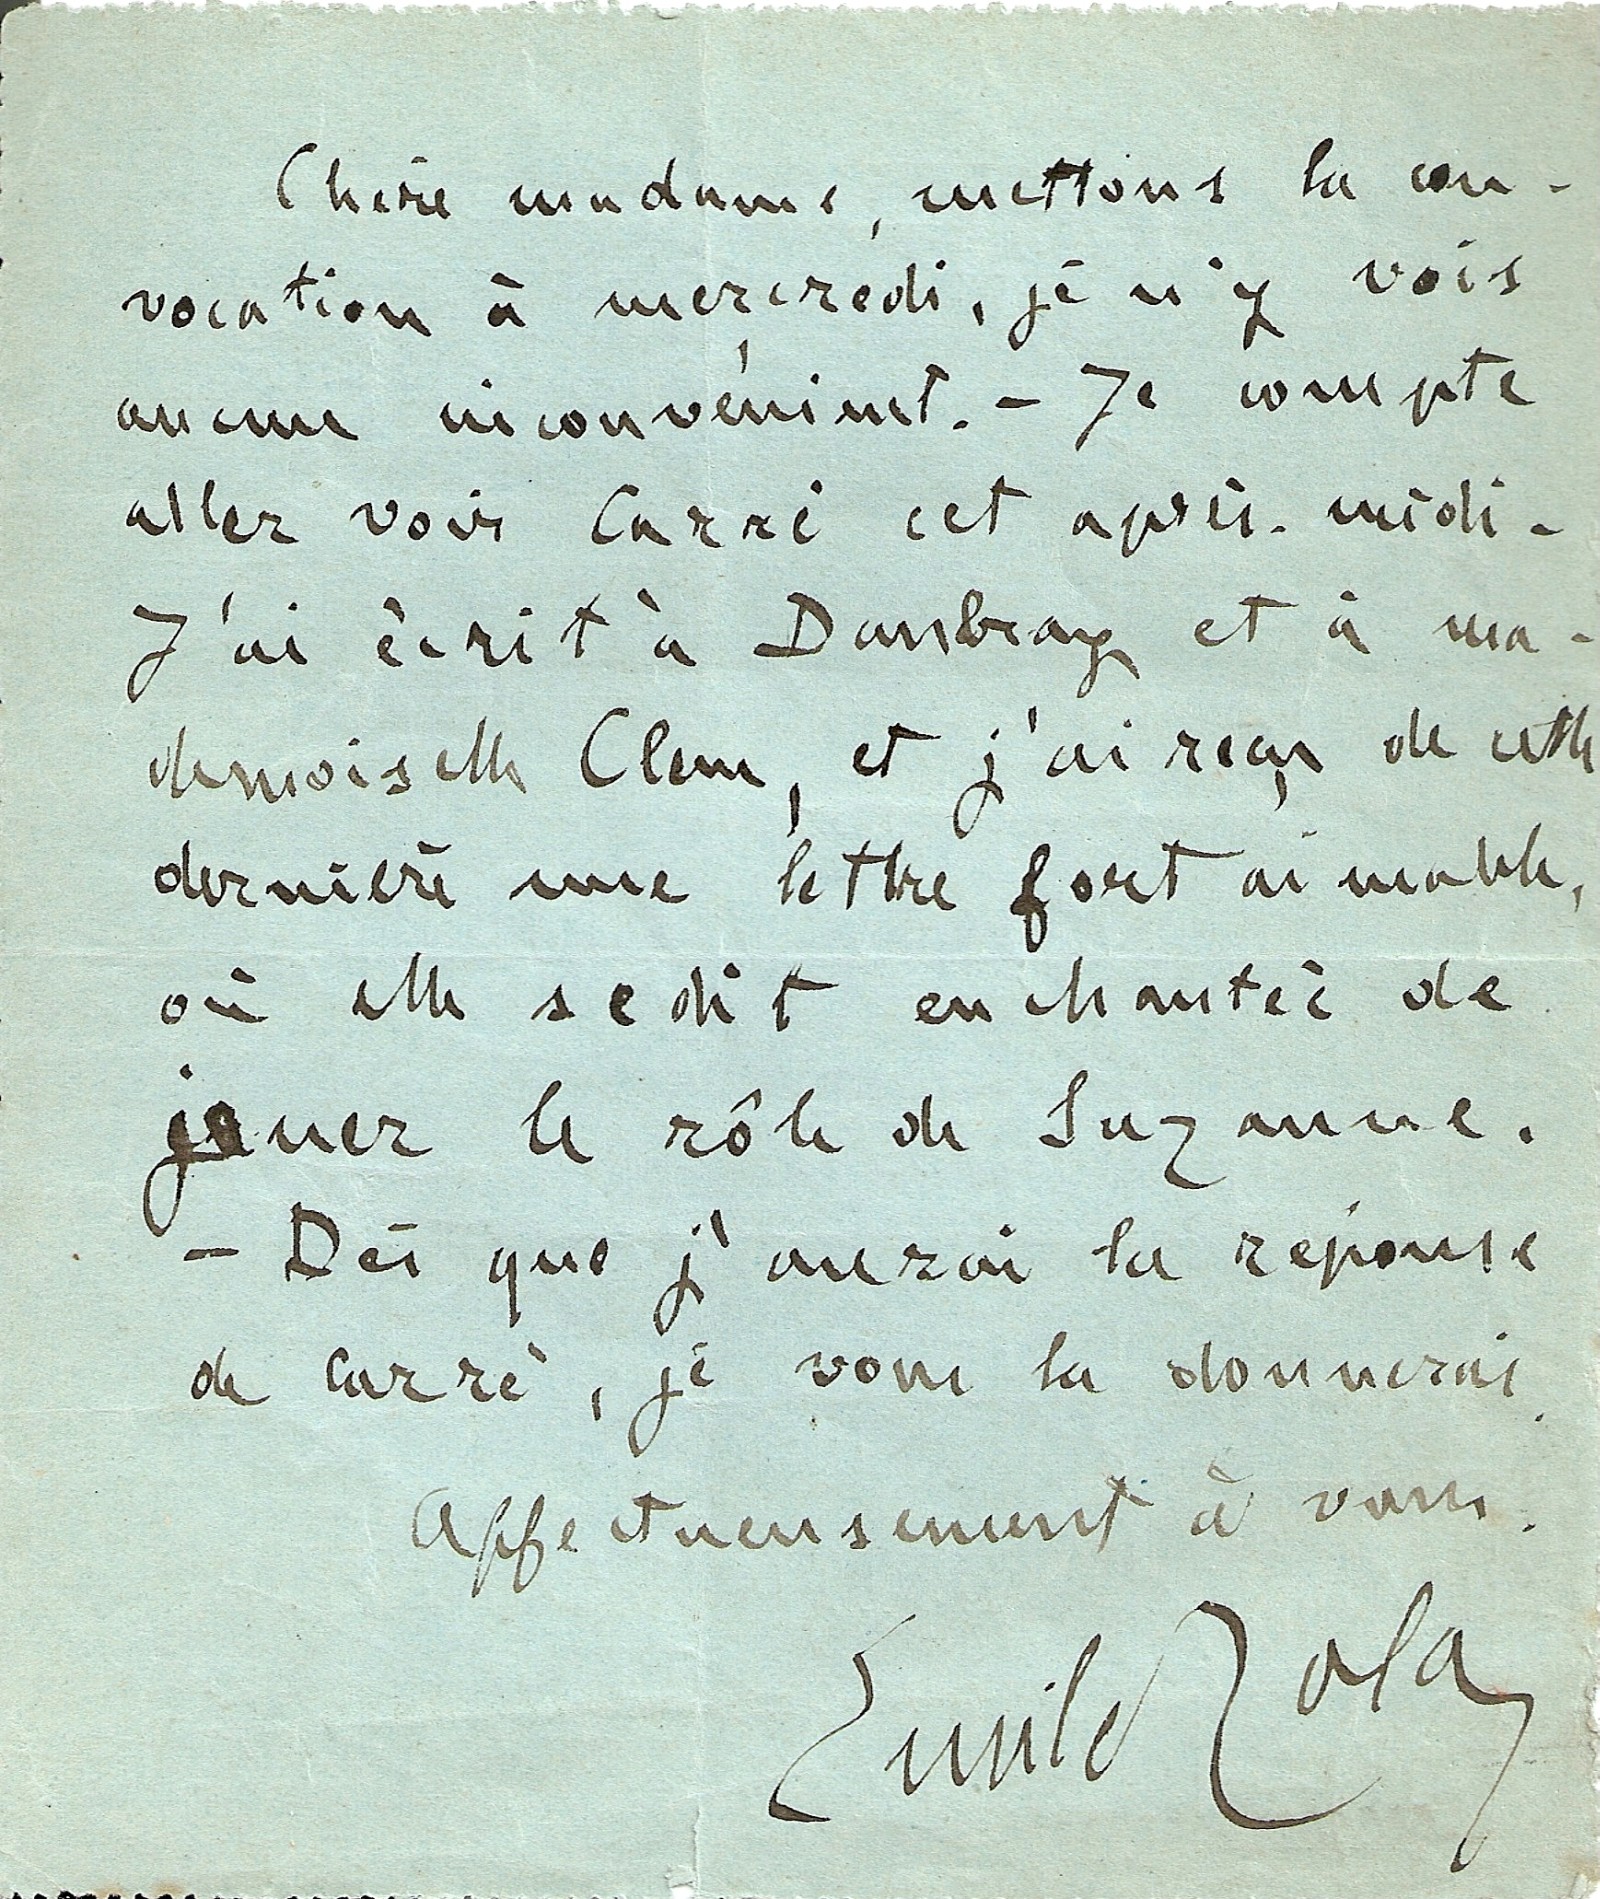 Chère madame, mettons la con-
vocation à mercredi, je n'y vois
aucun inconvénient. - Je compte
aller voir Carré cet après-midi -
J'ai écrit à Daubray et à ma-
demoiselle Clem, et j'ai reçu de cette
dernière une lettre fort aimable,
où elle se dit enchantée de
jouer le rôle de Suzanne.
- Dès que j'aurai la réponse
de Carré, je vous la donnerai.
Affectueusement à vous.
Emile Zola